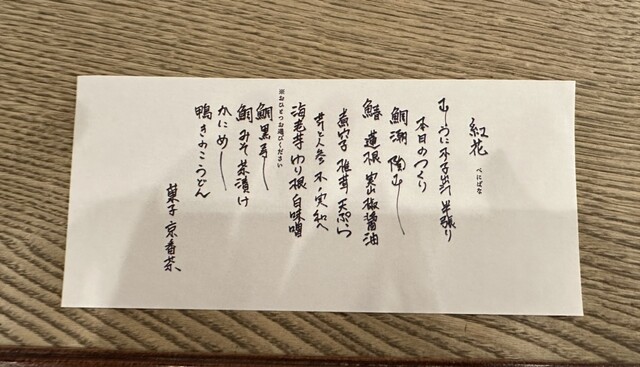 紅花
べにばな
むしうに 玉子出汁 半張り
本日のつくり
鯛潮 蒸し
鰆 蓮根 実山椒醤油
椎茸 天ぷら
芹と人参 木ノ実和へ
海老芋 ゆり根 白味噌
※おひとつお選びください
鯛黒寿し
鯛みそ茶漬け
かにめし
鴨きのこうどん
菓子 京番茶